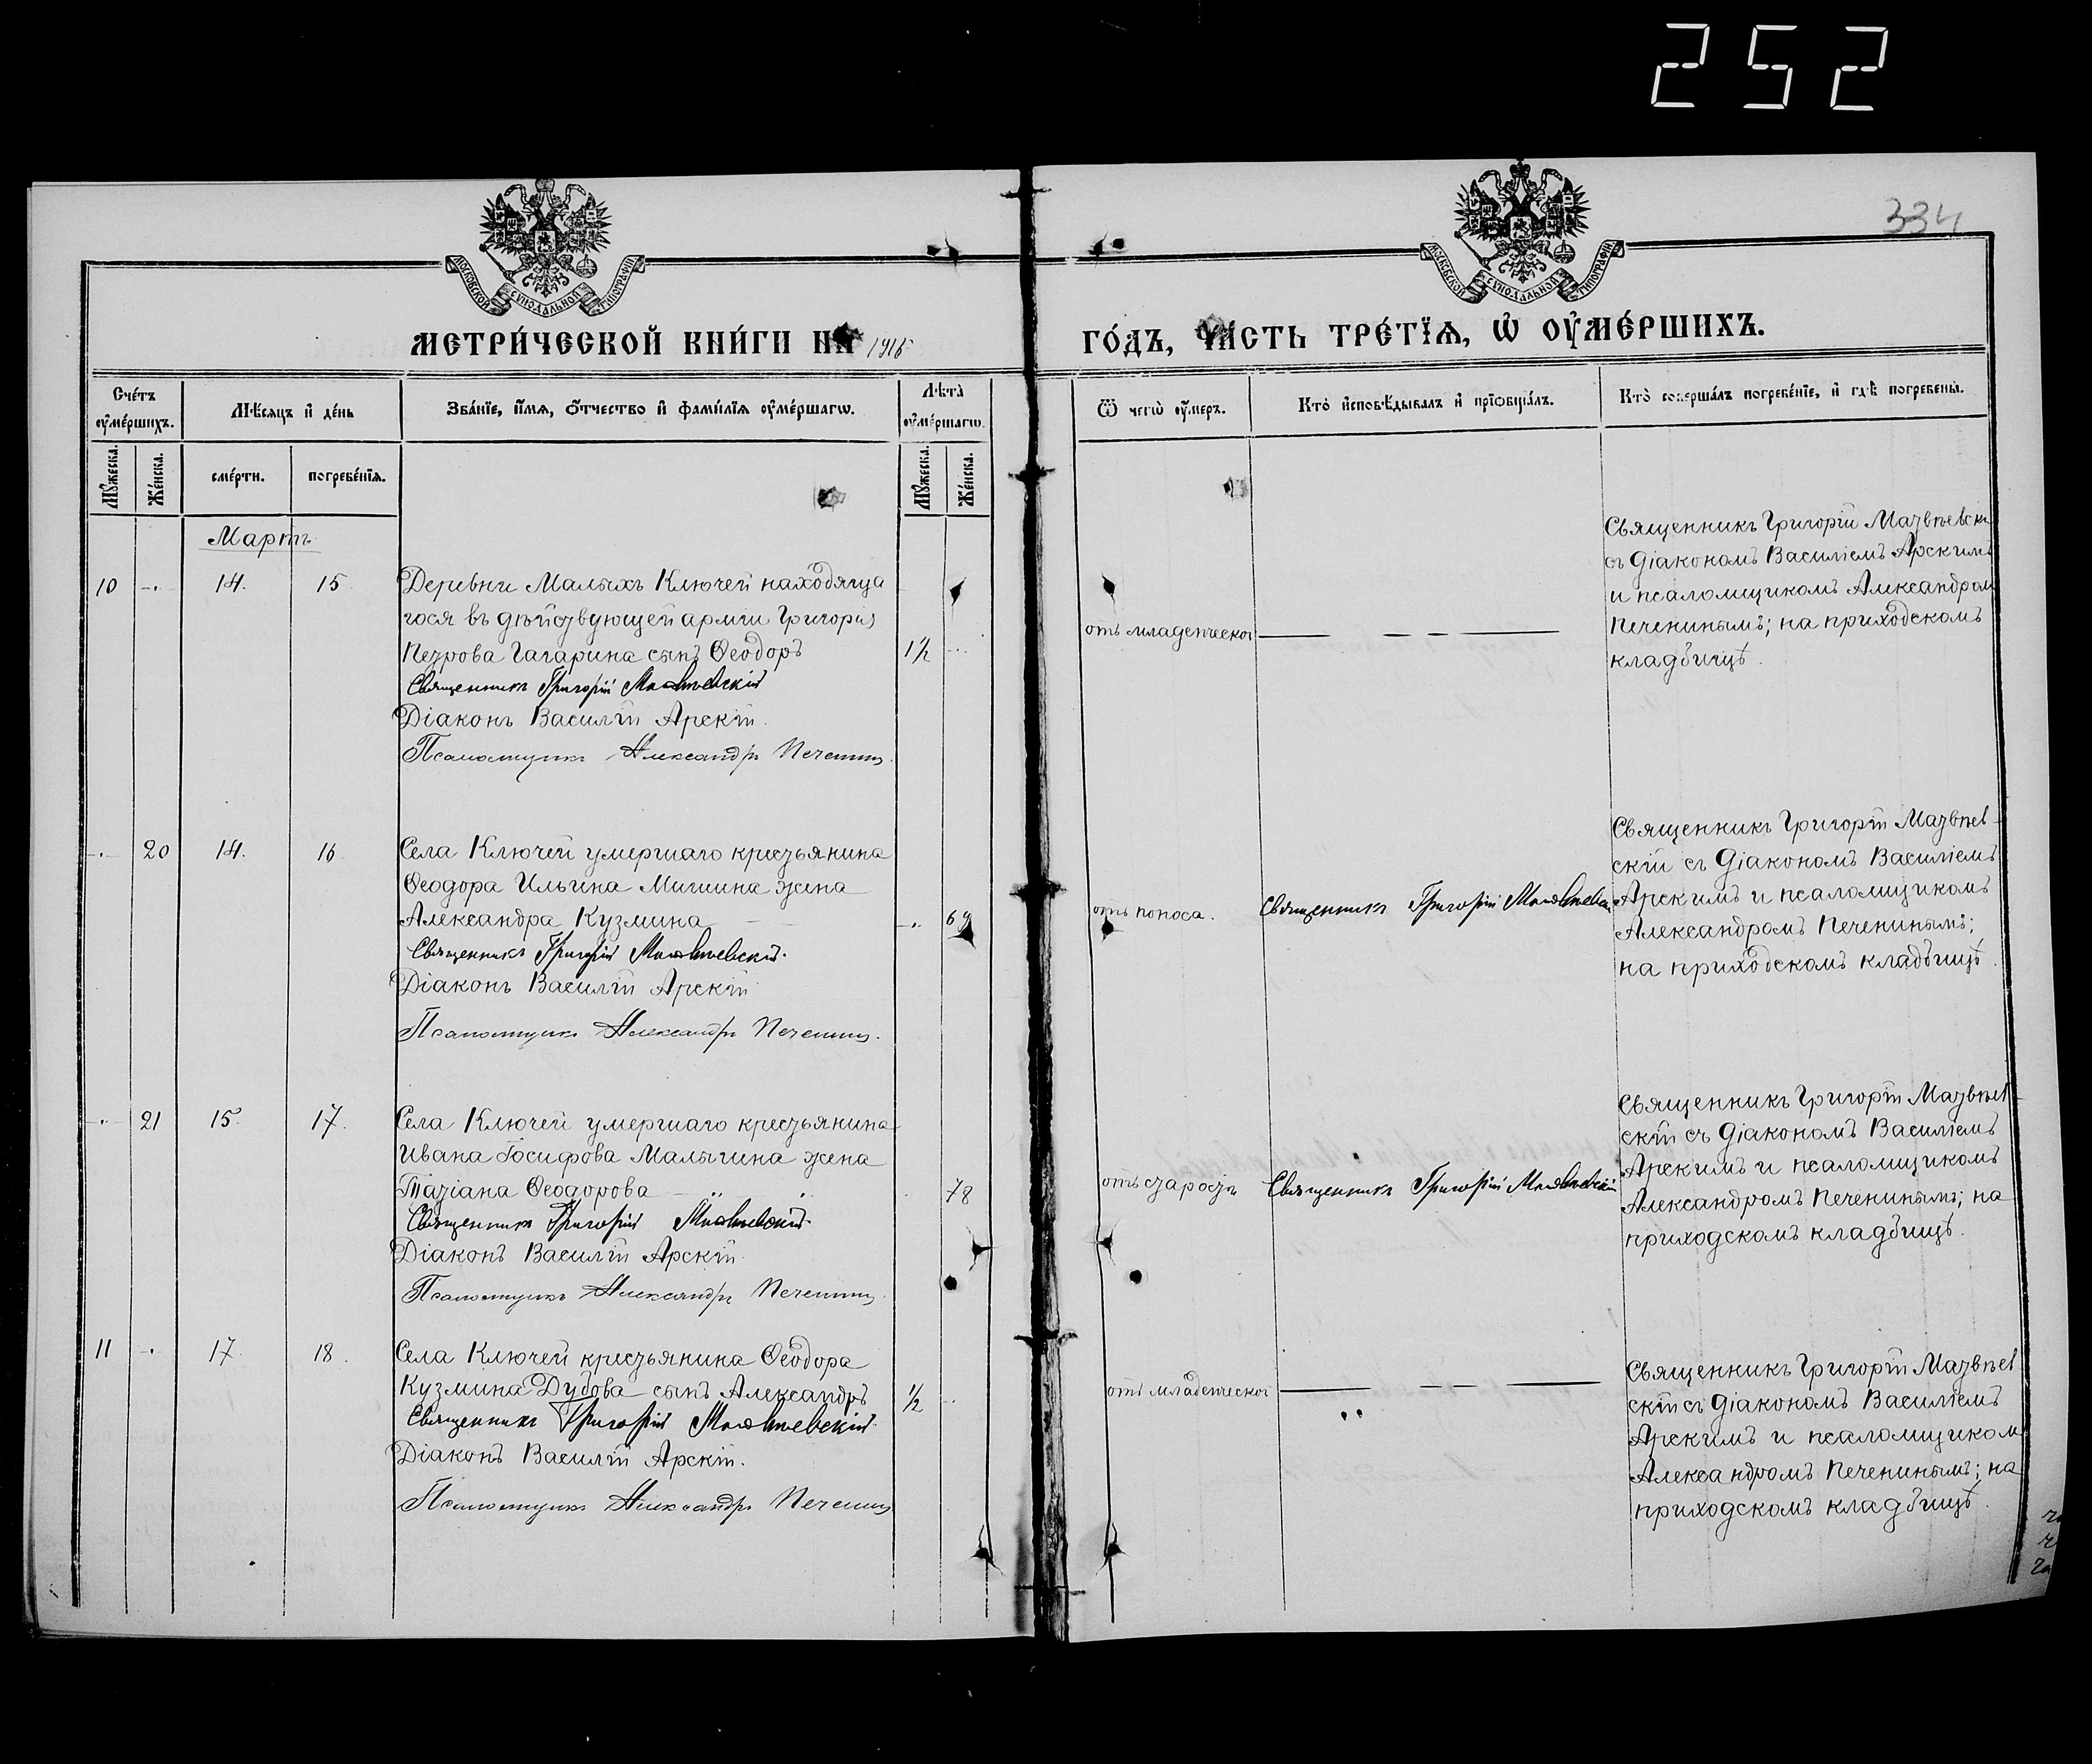 252
334
МОСКОВСКОЙ СѴНОДАЛЬНОЙ ТИПОГРАФІИ
МОСКОВСКОЙ СѴНОДАЛЬНОЙ ТИПОГРАФІИ
МЕТРИ́ЧЕСКОЙ КНИ́ГИ НА 1916
ГО́ДЪ, ЧА́СТЬ ТРЕ́ТЇѦ, Ѡ҆ ОУ҆МЕ́РШИХЪ.
Сче́тъ оу҆ме́ршихъ.
Мѣ́сѧцъ и҆ де́нь
Зва́нїе, и҆́мѧ, ѻ҆́тчество и҆ фами́лїѧ оу҆ме́ршагѡ.
Лѣ́та оу҆ме́ршагѡ.
Ѿ чегѡ̀ оу҆́меръ.
Кто̀ и҆сповѣ́дывалъ и҆ прїѡбща́лъ.
Кто̀ соверша́лъ погребе́нїе, и҆ гдѣ̀ погребены̀.
Мꙋ́жеска.
Же́нска.
сме́рти.
погребе́нїѧ.
Мꙋ́жеска.
Же́нска.
Мартъ
10 -. 14. 15. Деревни Малыхъ Ключей находяща
гося въ дѣйствующей арміи Григорія
Петрова Гагарина сынъ Ѳеодоръ 1½
Священникъ Григорій Матвѣевскій
Діаконъ Василій Арскій.
Псаломщикъ Александръ Печенинъ.
отъ младенческой
Священникъ Григорій Матвѣевскі
съ діакономъ Василіемъ Арскимъ
и псаломщикомъ Александром
Печенинымъ; на приходскомъ
кладбищѣ.
-.- 20 14. 16 Села Ключей умершаго крестьянина
Ѳеодора Ильина Мишина жена
Александра Кузмина 69
Священникъ Григорій Матвѣевскій.
Діаконъ Василій Арскій
Псаломщикъ Александръ Печенинъ.
отъ поноса.
Священникъ Григорій Матвѣевскі
Священникъ Григорій Матвѣев-
скій съ діакономъ Василіемъ
Арскимъ и псаломщикомъ
Александромъ Печенинымъ;
на приходскомъ кладбищѣ.
-.- 21 15. 17. Села Ключей умершаго крестьянина
Ивана Іосифова Малыгина жена
Татіана Ѳеодорова 78
Священникъ Григорій Матвѣевскій.
Діаконъ Василій Арскій.
Псаломщикъ Александръ Печенинъ
отъ старости
Священникъ Григорій Матвѣевскій
Священникъ Григорій Матвѣев-
скій съ діакономъ Василіемъ
Арскимъ и псаломщикомъ
Александромъ Печенинымъ; на
приходскомъ кладбищѣ.
11 -. 17. 18. Села Ключей крестьянина Ѳеодора
Кузмина Дубова сынъ Александръ ½
Священникъ Григорій Матвѣевскій.
Діаконъ Василій Арскій.
Псаломщикъ Александръ Печенинъ
отъ младенческой
Священникъ Григорій Матвѣев
скій съ діакономъ Василіемъ
Арскимъ и псаломщиком
Александромъ Печенинымъ; на
приходскомъ кладбищѣ.